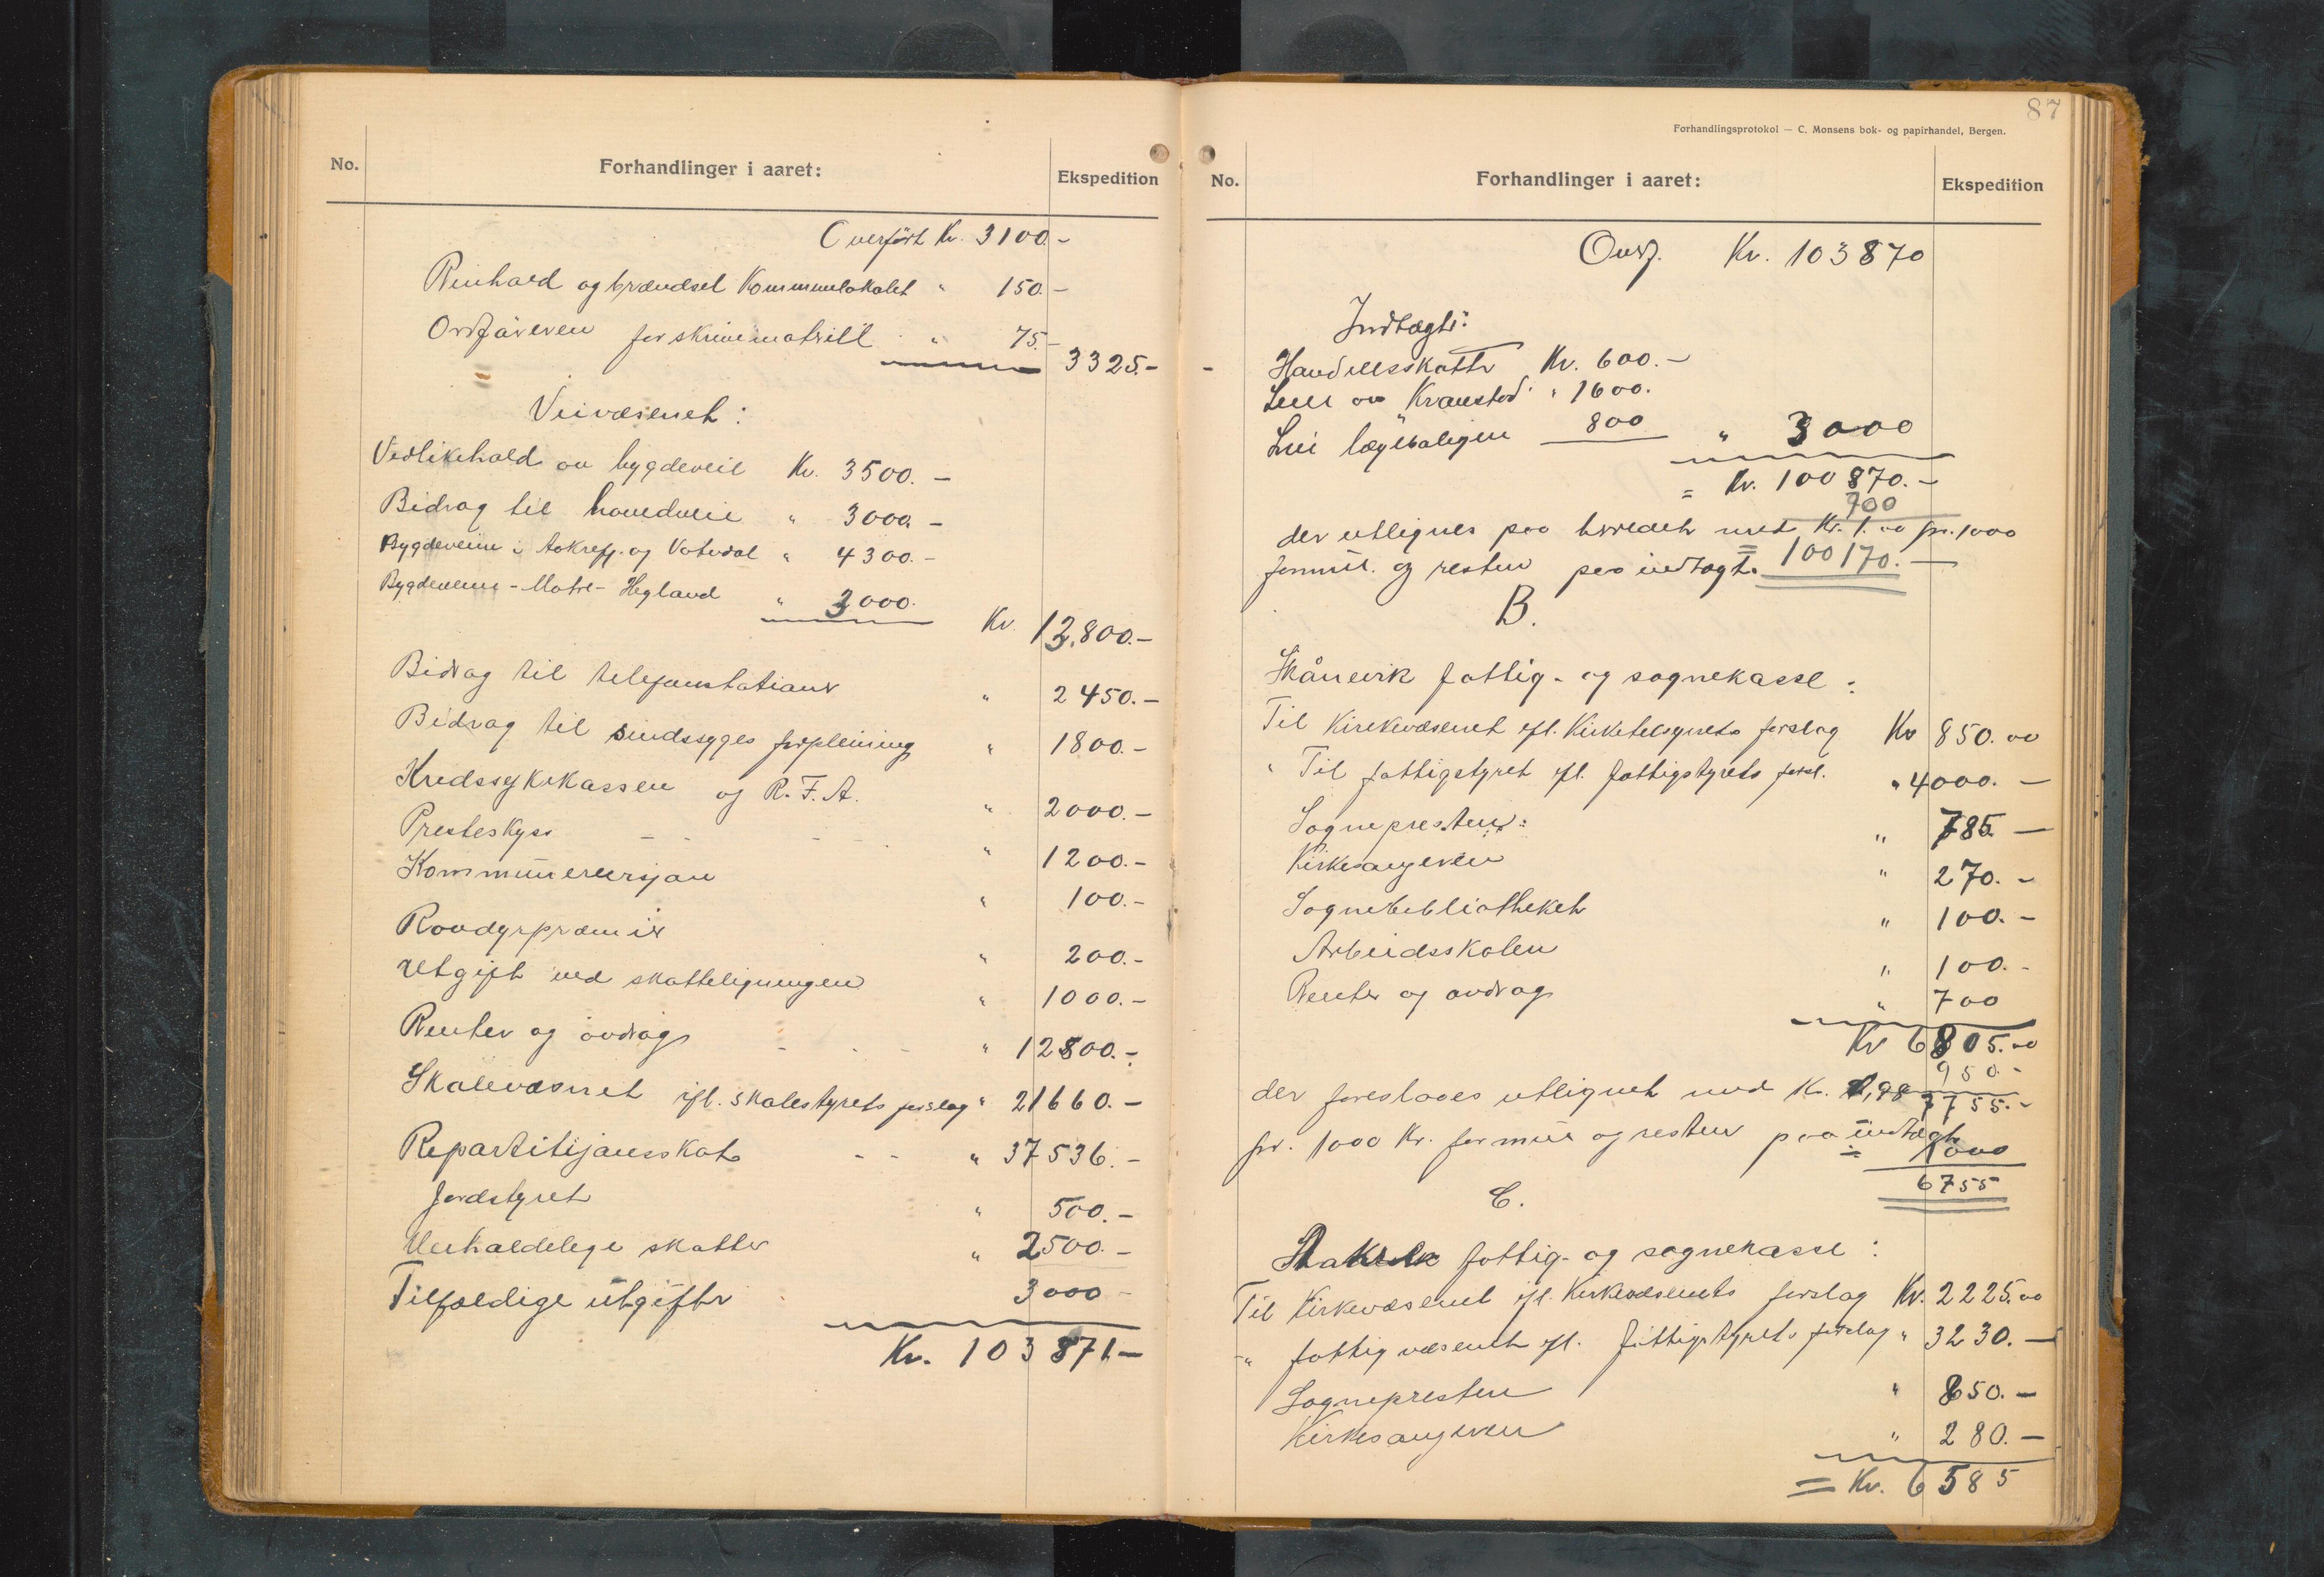 No. Forhandlinger i aaret: Ekspedition
Overført Kr. 3100.-
Renhold og brændsel Kommunelokalet " 150.-
Ordføreren for skrivematriel " 75.-
3325.-
Veivæsenet:
Vedlikehold av bygdeveie Kr. 3500.-
Bidrag til hovedveie " 3000.-
Bygdeveine i Aakrefj. og Vatsdal " 4300.-
Bygdeveine - Matre - Høgland " 3000.
Kr. 13,800.-
Bidrag til telefonstationer " 2450.-
Bidrag til sindssyges forpleining " 1800.-
Kredssykekassen og R.F.A. " 2000.-
Presteskyss " 1200.-
Kommunerevisjon " 100.-
Rovdyrpræmie " 200.-
Utgift ved skatteligningen " 1000.-
Renter og avdrag - - - " 12800.-
Skolevæsnet ifl. skolestyrets forslag " 21660.-
Repartitijonsskat - - " 37536.-
Jordstyret " 500.-
Uerholdelege skatter " 2500.-
Tilfældige utgifter 3000-
Kr. 103 871.-
87
Forhandlingsprotokol — C. Monsens bok- og papirhandel, Bergen.
No. Forhandlinger i aaret: Ekspedition
Overf. Kr. 103870
Indtægt:
- Handelsskatter Kr. 600.-
Leie av Kronstad " 1600.
Leie lægeboligen 800 " 3000
= Kr. 100870.-
700
der utlignes paa herredet med Kr. 1.00 pr. 1000
formue og resten paa indtægt. = 100170.-
B.
Skånevik fattig- og sognekasse:
Til Kirkevæsenet ifl. Kirketilsynets forslag Kr 850.00
" Til fattigstyret ifl. fattigstyrets forsl. " 4000.-
Sognepresten: " 785.-
Kirkesangeren " 270.-
Sognebibliotheket " 100.-
Arbeidsskolen " 100.-
Renter og avdrag " 700
Kr 6805.00
950.-
der foreslaaes utlignet med Kr. 1,98 7755.-
pr. 1000 Kr. formue og resten paa indtægt
= 1000
6755
C.
fattig- og sognekasse:
Til Kirkevæsenet ifl. Kirkevæsenets forslag Kr. 2225.00
-" fattigvæsenet ifl. fattigstyrets forslag " 3230.-
Sognepresten " 850.-
Kirkesangeren " 280.-
= Kr. 6585